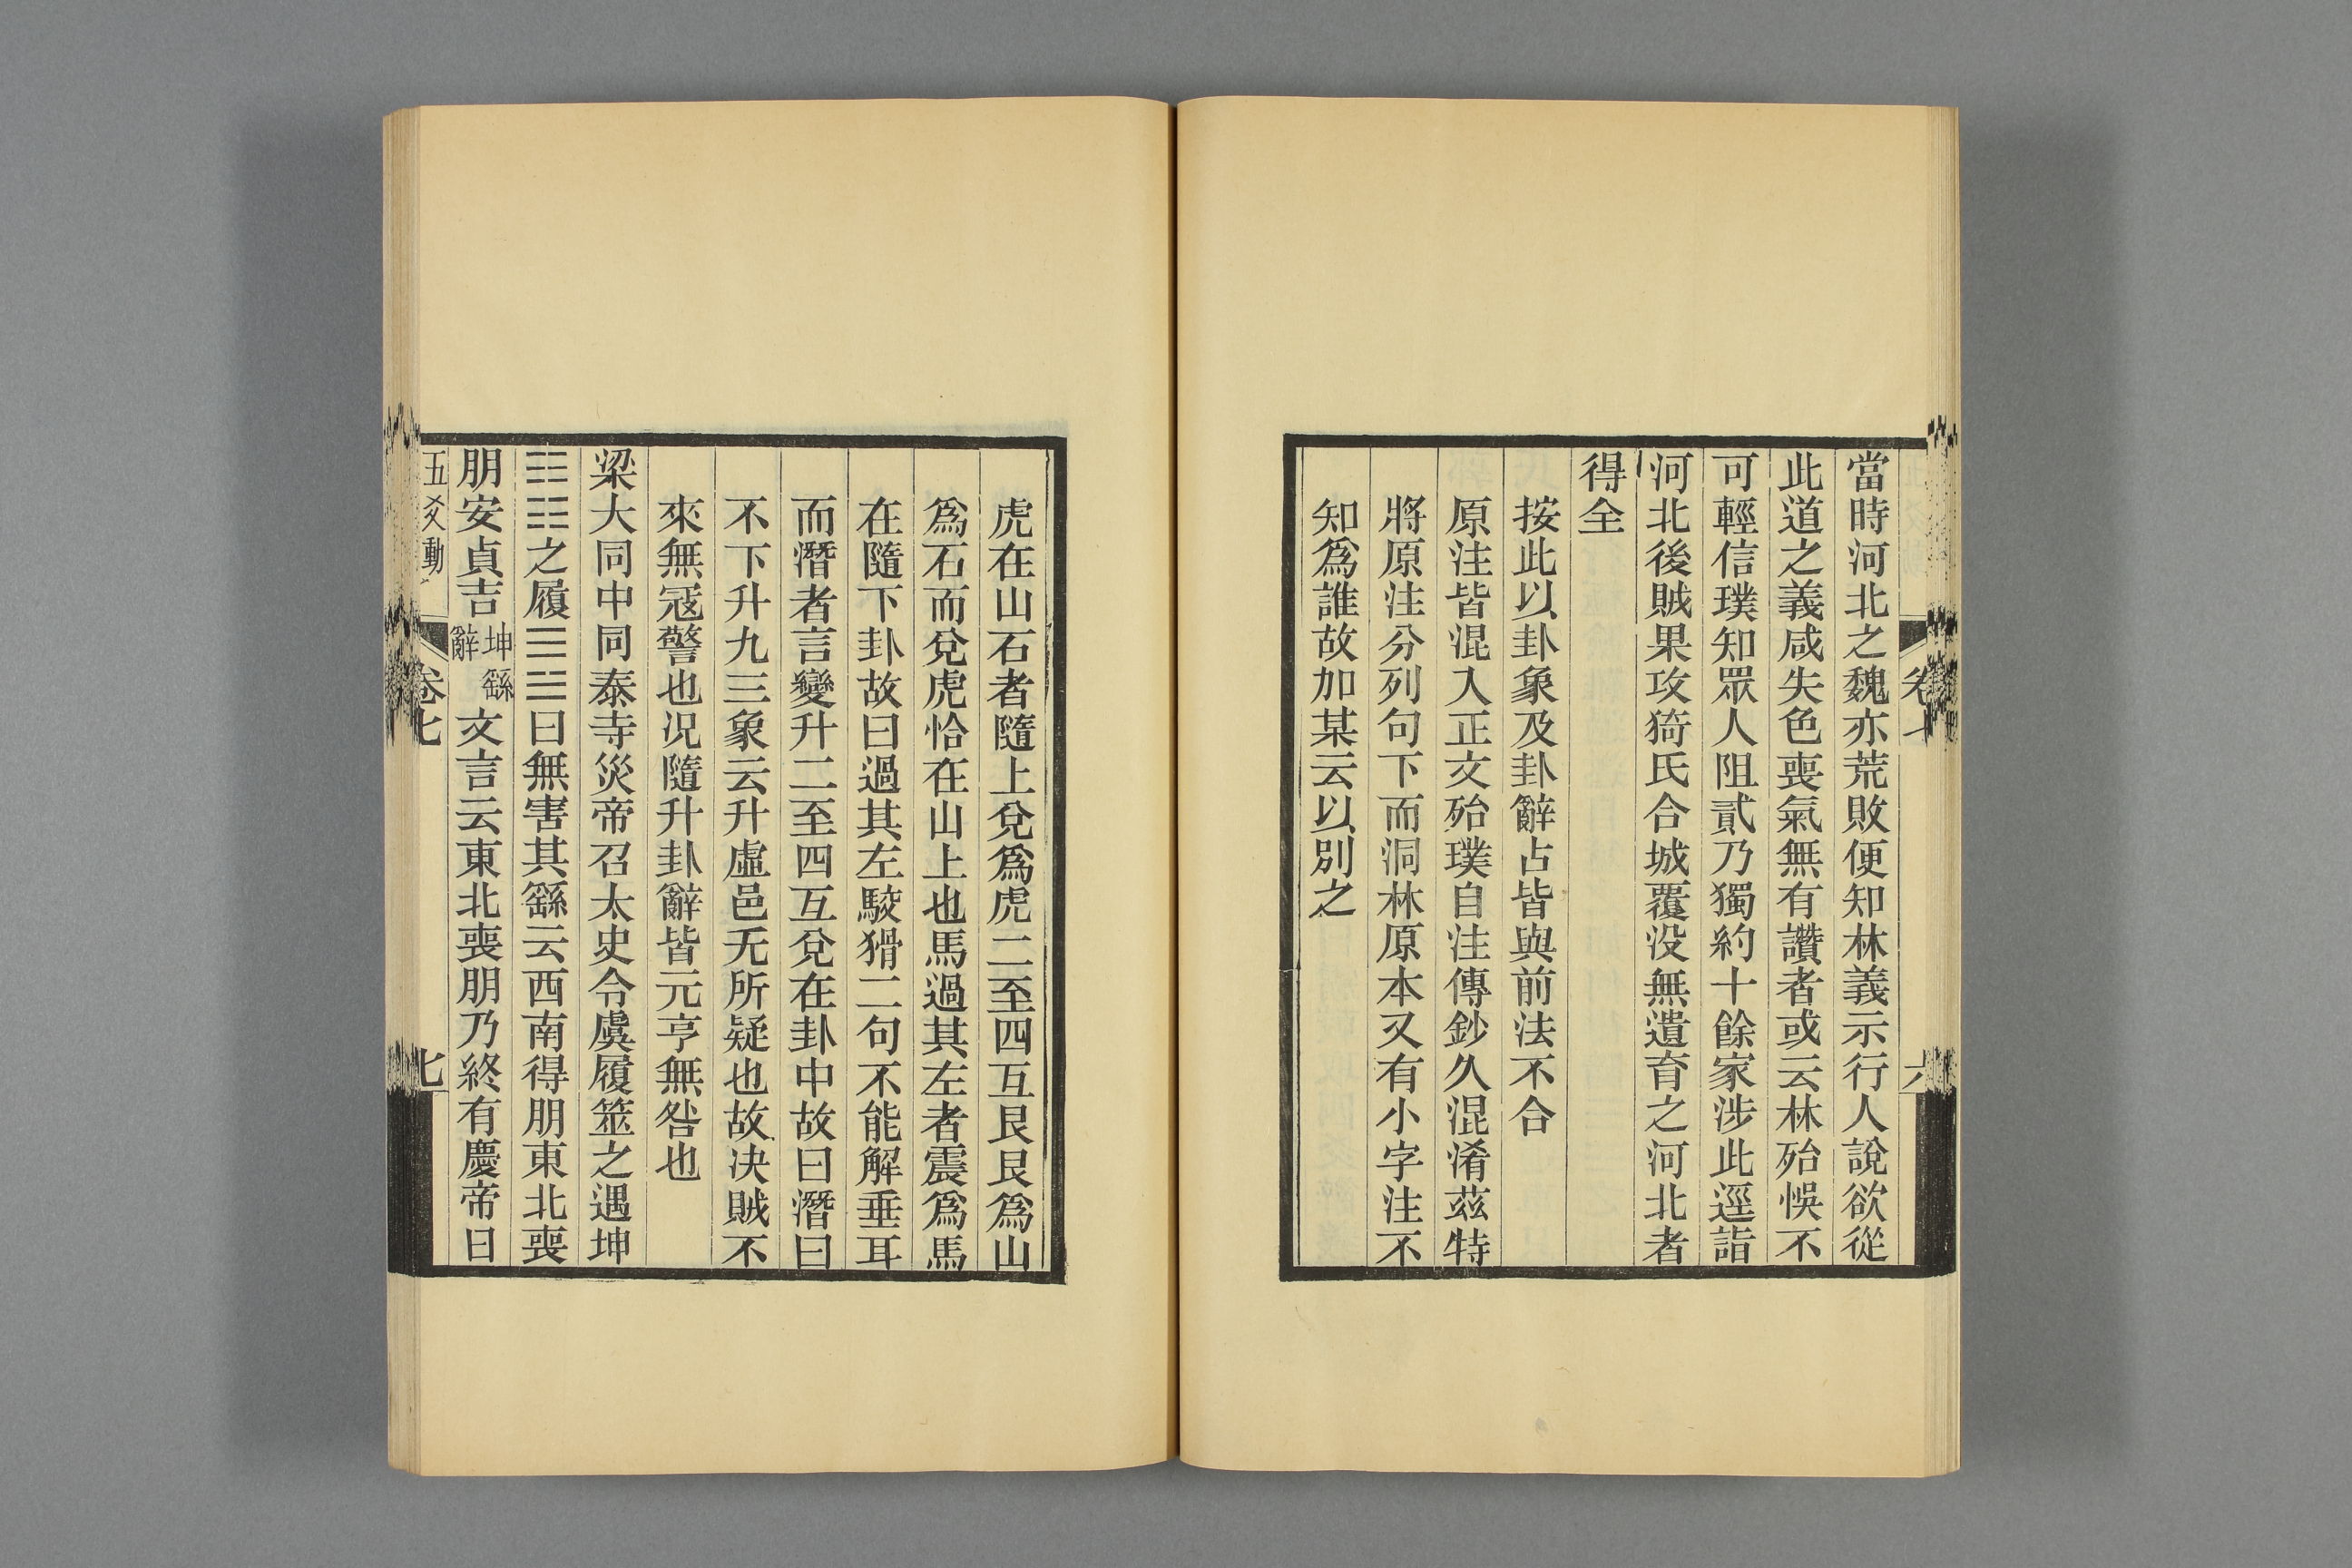 當時河北之魏亦荒敗便知林義示行人說欲從
此道之義咸失色喪氣無有讚者或云林殆悞不
可輕信璞知眾人阻貳乃獨約十餘家涉此逕詣
河北後賊果攻猗氏合城覆没無遺育之河北者
得全
按此以卦象及卦辭占皆與前法不合
原注皆混入正文殆璞自注傳鈔久混淆茲特
將原注分列句下而洞林原本又有小字注不
知爲誰故加某云以別之
虎在山石者隨上兌爲虎二至四互艮艮爲山
爲石而兌虎恰在山上也馬過其左者震爲馬
在隨下卦故曰過其左駮猾二句不能解垂耳
而潛者言變升二至四互兌在卦中故曰潛曰
不下升九三象云升虛邑无所疑也故决賊不
來無冦警也况隨升卦辭皆元亨無咎也
梁大同中同泰寺災帝召太史令虞履筮之遇坤
☷☷之履☰☱曰無害其繇云西南得朋東北喪
朋安貞吉坤繇辭文言云東北喪朋乃終有慶帝曰
五爻動
卷七
七
卷七
六